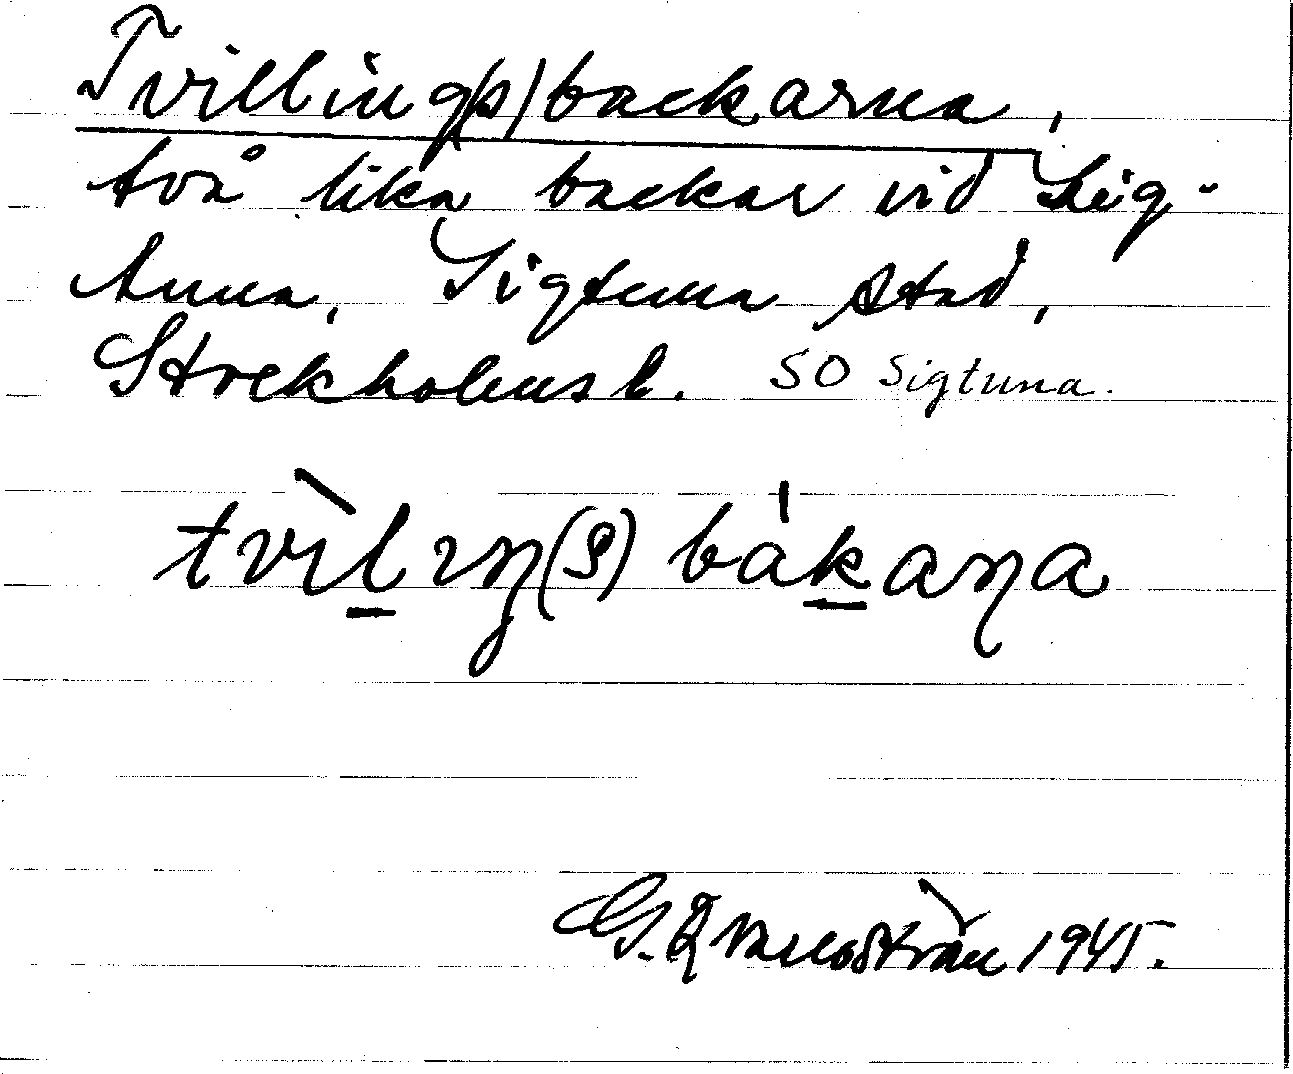 Tvilling(s)backarna,
två lika backar vid Sig-
tuna, Sigtuna stad,
Stockholms l. SO Sigtuna.
tvìlıŋ(s) bákaɳa
1945.